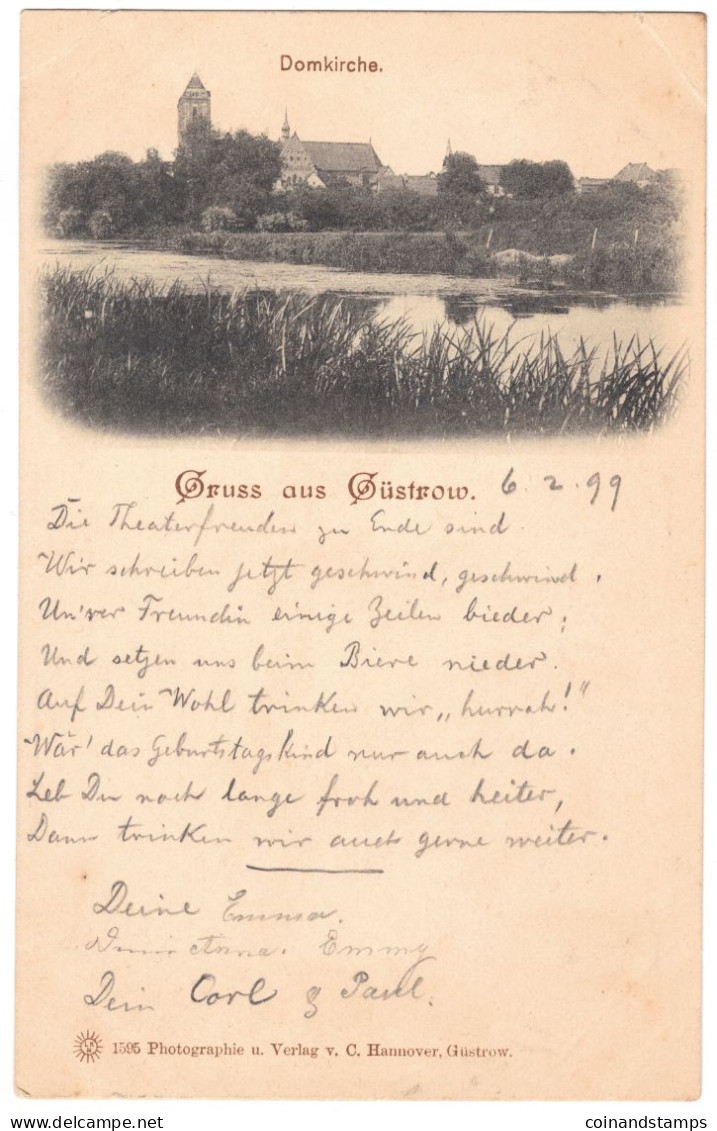 Domkirche.
Gruss aus Güstrow. 6. 2. 99
Die Theaterfreuden zu Ende sind.
Wir schreiben jetzt geschwind, geschwind,
Uns'rer Freundin einige Zeilen bieder;
Und setzen uns beim Biere nieder.
Auf Dein Wohl trinken wir „hurrah!"
Wär' das Geburtstagskind nur auch da.
Leb Du noch lange froh und heiter,
Dann trinken wir auch gerne weiter.
Deine Emma.
Anna. Emmy
Dein Carl & Paul.
1595 Photographie u. Verlag v. C. Hannover, Güstrow.
coinandstamps